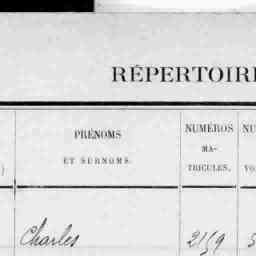 RÉPERTOIRE
PRÉNOMS
ET SURNOMS.
NUMÉROS
MA-
TRICULES.
Charles
2159